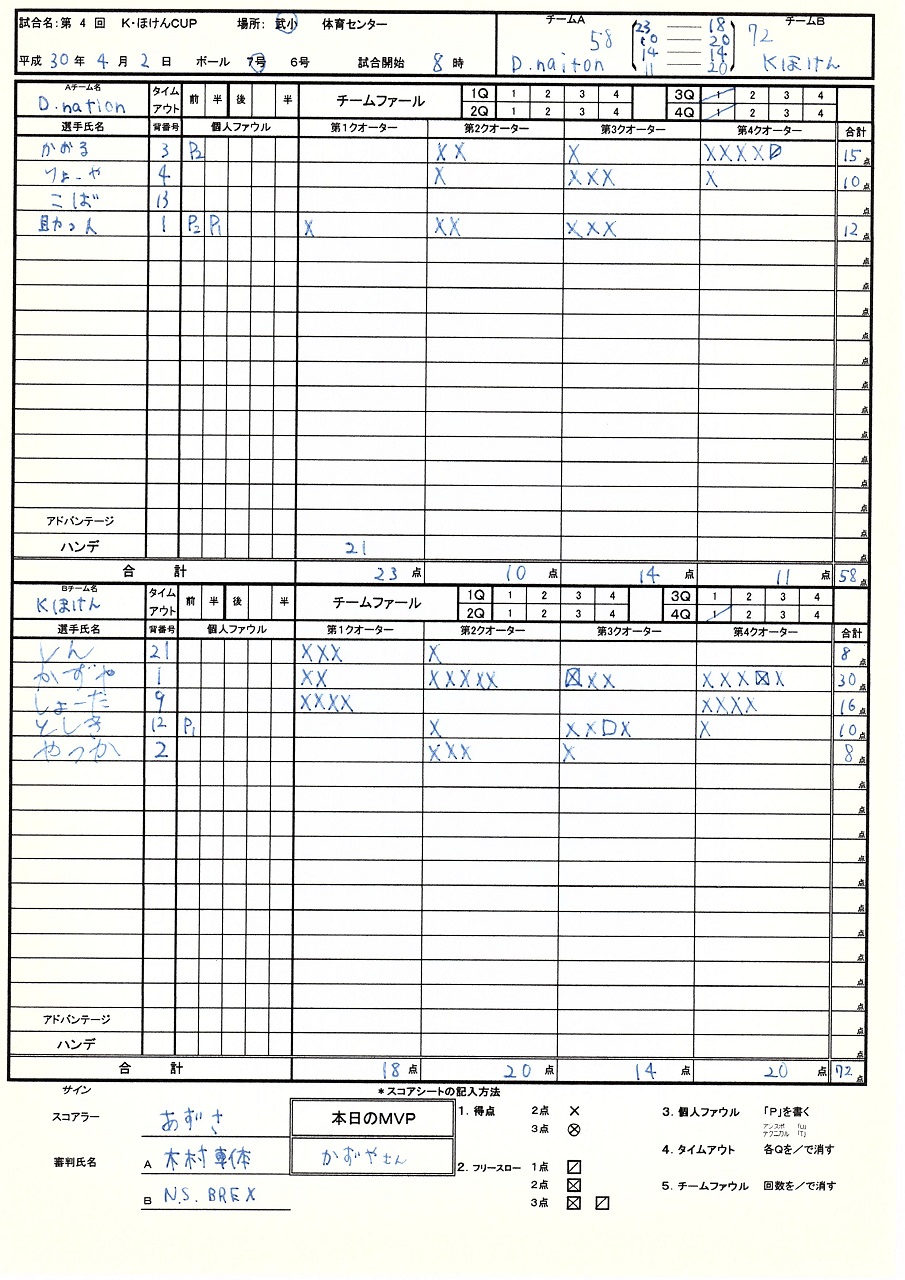 試合名：第 4 回 K・ほけんCUP 場所： 武小 体育センター
チームA 58 23 ― 18 72 チームB
10 ― 20
14 ― 14
D.naiton 11 20 Kほけん
平成 30 年 4 月 2 日 ボール 7号 6号 試合開始 8 時
Aチーム名 タイムアウト 前 半 後 半 チームファール 1Q 1 2 3 4 3Q 1 2 3 4
D.nation 2Q 1 2 3 4 4Q 1 2 3 4
選手氏名 背番号 個人ファウル 第1クオーター 第2クオーター 第3クオーター 第4クオーター 合計
かおる 3 P2 X X X X X X X 15点
りょーや 4 X X X X X 10点
こば 13 点
1 P2 P1 X X X X X X 12点
アドバンテージ 点
ハンデ 21 点
合 計 23 点 10 点 14 点 11 点 58点
Bチーム名 タイムアウト 前 半 後 半 チームファール 1Q 1 2 3 4 3Q 1 2 3 4
Kほけん 2Q 1 2 3 4 4Q 1 2 3 4
選手氏名 背番号 個人ファウル 第1クオーター 第2クオーター 第3クオーター 第4クオーター 合計
しん 21 X X X X 8点
かずや 1 X X X X X X X ☒ X X X X X ☒ X 30点
しょーた 9 X X X X X X X X 16点
としき 12 P1 X X X X X 10点
やっか 2 X X X X 8点
アドバンテージ 点
ハンデ 点
合 計 18 点 20 点 14 点 20 点 72点
サイン *スコアシートの記入方法
スコアラー あずさ 本日のMVP 1. 得点 2点 × 3. 個人ファウル 「P」を書く
3点 ⊗ アンスポ 「U」
テクニカル 「T」
審判氏名 A 木村専体 かずやさん 2. フリースロー 1点 ⧄ 4. タイムアウト 各Qを/で消す
2点 ☒ 5. チームファウル 回数を/で消す
B N.S. BREX 3点 ☒ ⧄